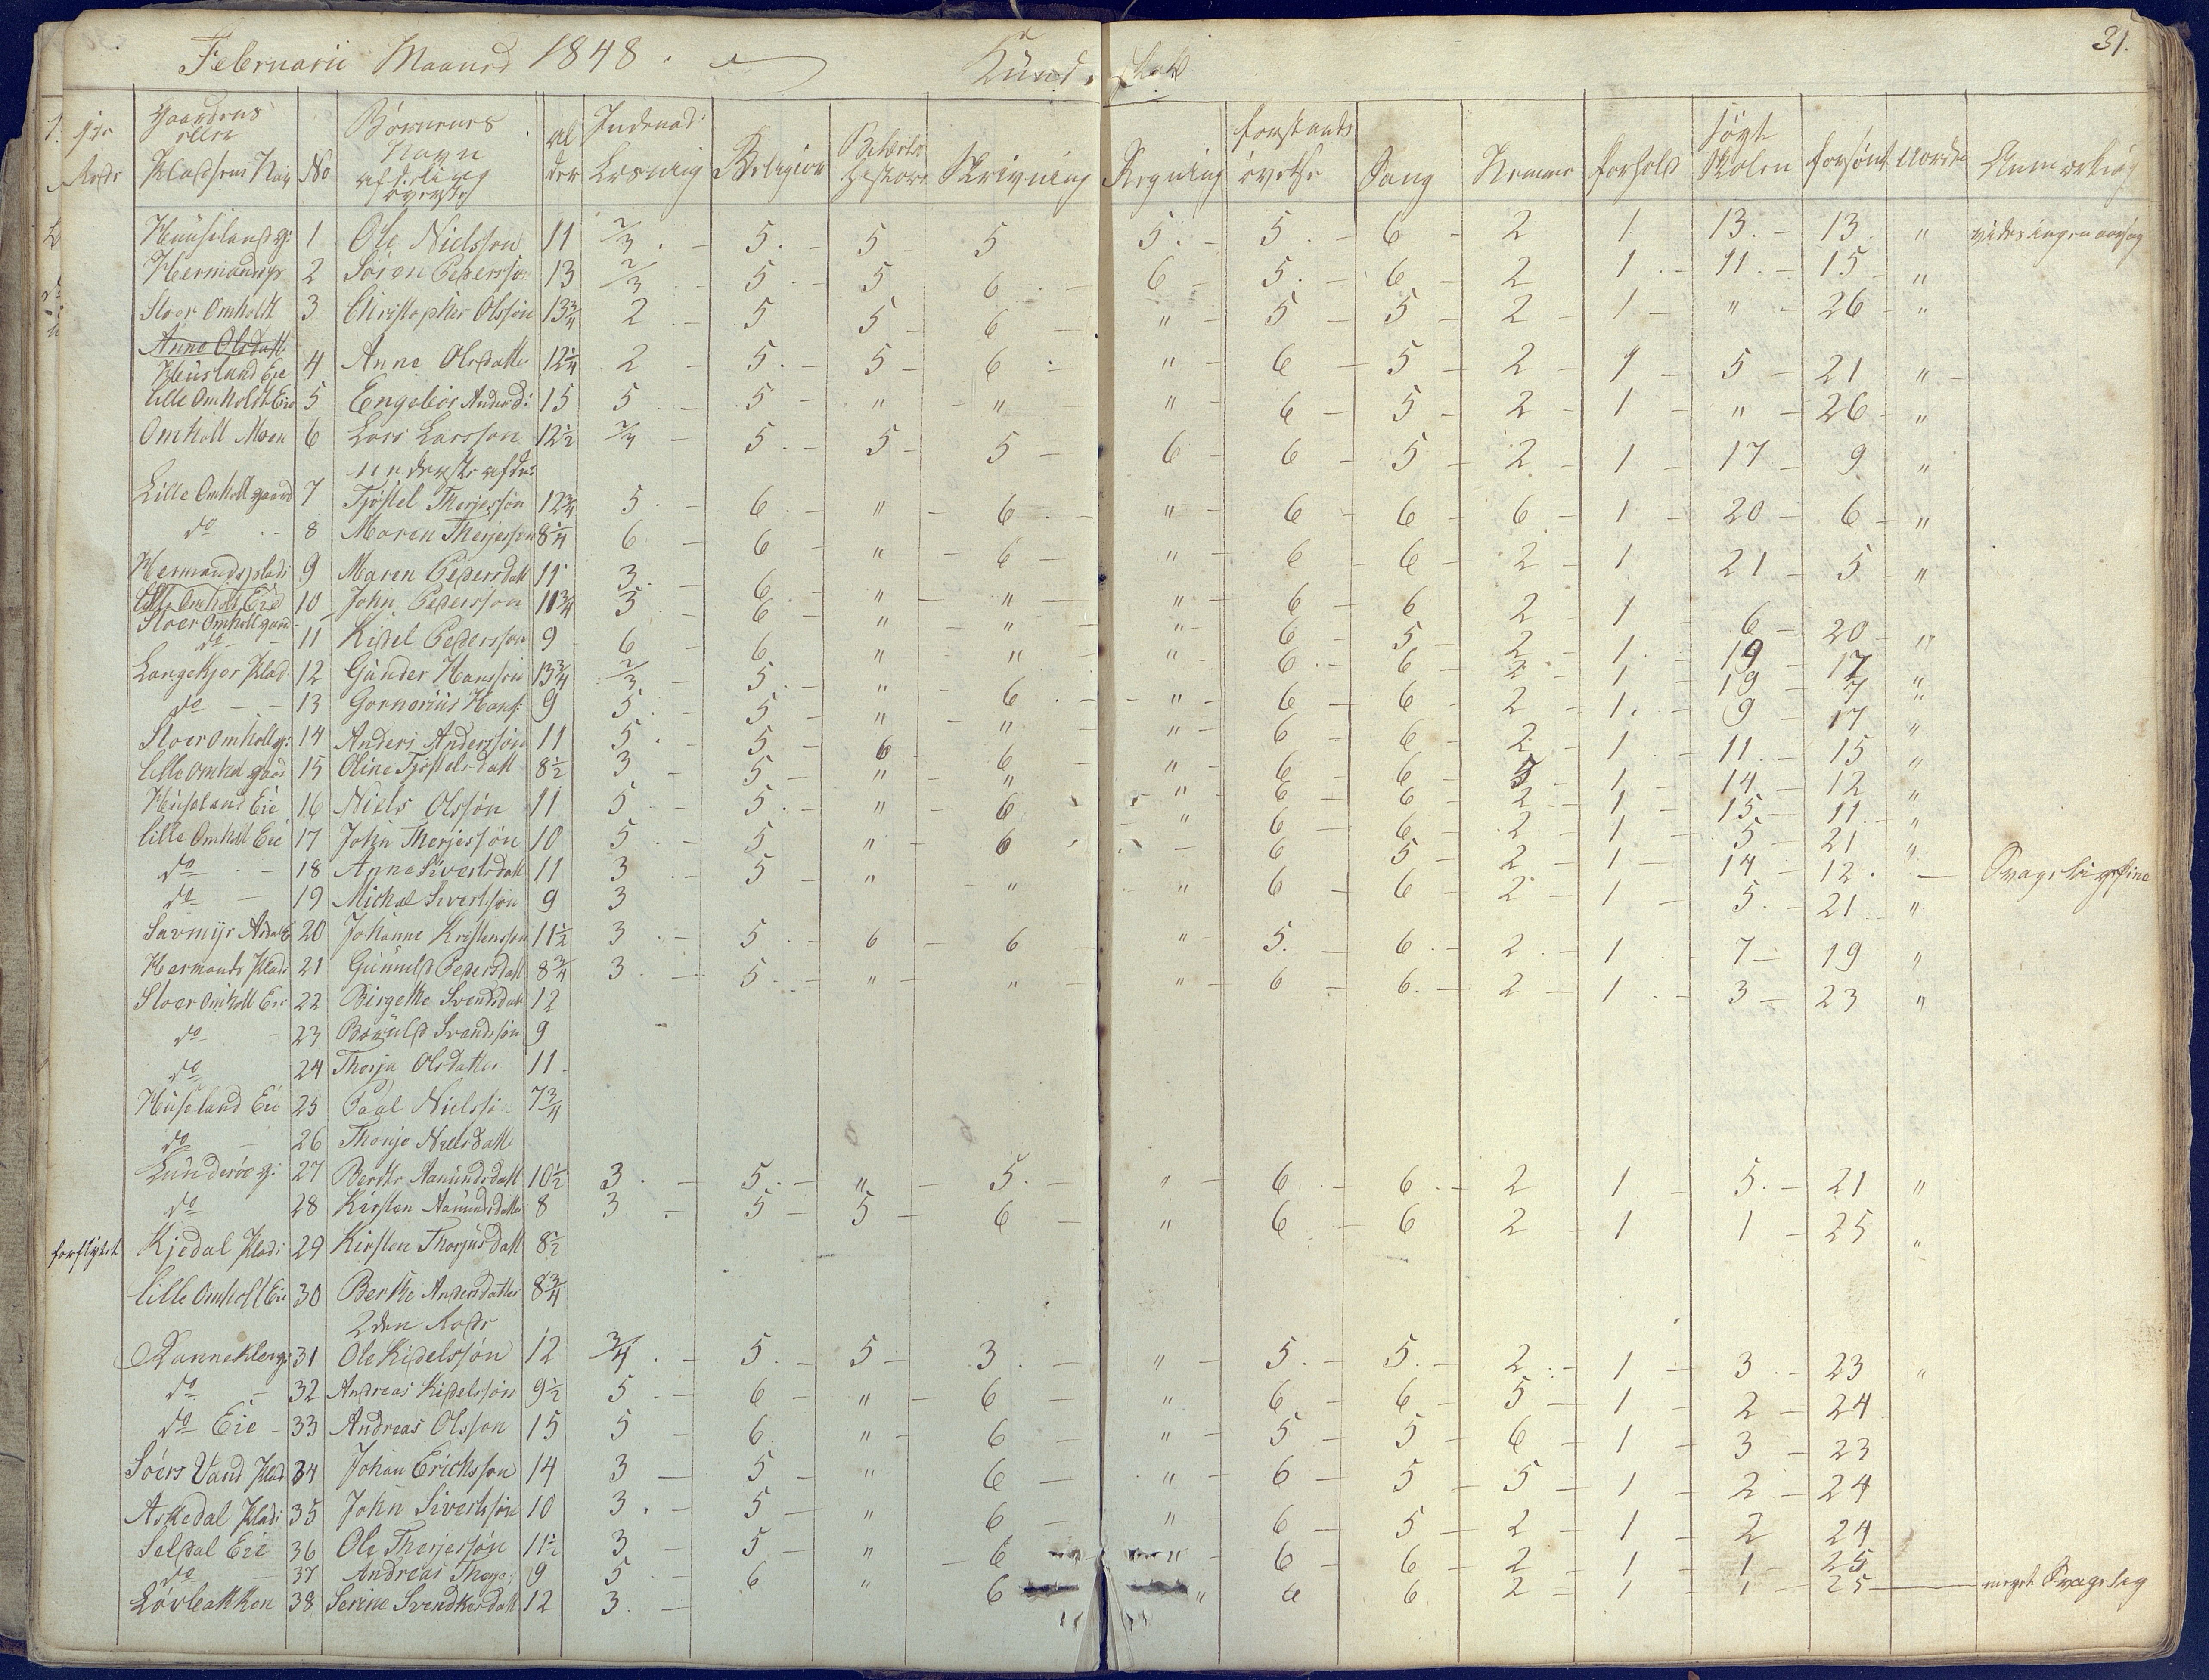 Februarii Maaned 1848.
Kund skab
31.
Gaardens eller Pladsens Navn No Børnenes Navn afdeling øverste Alder Indenad: Læsning Religion Bibelhistorie Skrivning Regning forstands øvelse Sang Nemme forhold søgt Skolen forsømt Anmerkning
1 Ole Nielsson 11 2/3 . - 5. - 5 - 5 5. - 5. - 6 - 2 1. 13. - 13. "
2 Søren Pedersson 13 2/3 . - 5. - 5 6 . - 6 - 5. - 6 - 2 1. - 11. - 15 - "
Stoer Omholt 3 Christopher Olssøn 13 3/4 2 . - 5 5 - 6 - " - 5 - 5 - 2 - 1 - " - 26 - "
Anne Olsdatt
Huusland Eie 4 Anne Olsdatter 12 1/4 2 - 5. - 5 - 6 . - " - 6 - 5 - 2 - 1 - 5 - 21 " -
Lille Omholt Eie 5 Engebor Andersd: 15 5 . - 5 - " - " " - 6 - 5 - 2 - 1 - " - 26 - "
Omholt Moen 6 Lars Larsson 12 1/2 - 5. - 5 - 5 - 6 - 6 - 5 - 2 - 1 - 17 - 9 "
nederste afde:
Lille Omholt gaard 7 Tjøstel Therjessøn 12 3/4 5 . - 6 . - " - 6 . - " - 6 - 6 - 6 - 1 - 20 - 6 - "
do . - 8 Maren Therjesson 8 1/4 6 - 6 - " - 6 - " - 6 - 6 - 2 - 1 21 - 5 - "
Hermandsplads 9 Maren Pedersdatt 11 3. - 6 - " - " - " - 6 - 6 2 - 1 - 6 - 20 - "
Lille Omholt Eie
Stoer Omholt gaard 10 John Pedersson 11 3/4 5 - 6 - " - " - " - 6 - 5 - 2 - 1. - 19 - 17 "
do - 11 Kidel Pedersson 9 6 - 6 - " - " - " - 6. - 6 - 2 - 1 - 19 - 7 "
Langekjer Plad 12 Gunder Hansson 13 3/4 2/3 - 5. - " - 6 . - " - 6 - 6 - 2 - 1. - 9 - 17 "
do - - 13 Gornorius Hans: 9 5. - 5 - " - " " - 6 - 6 - 2 - 1 - 11. - 15 "
Stoer Omholt g: 14 Anders Anderssøn 11 5. - 5 - 6 - 6 - " - 6 - 6 - 5 - 1 - 14 - 12 "
Lille Omhol gaard 15 Oline Tjøstelsdatt 8 1/2 3 - 5 - " - " " - 6 - 6 - 2 - 1 - 15 - 11 "
Huusland Eie 16 Niels Olssøn 11 5 . - 5. - " - 6 " - 6 - 6 - 2 - 1 - 5 - 21 "
Lille Omholt Eie 17 John Therjessøn 10 5 . - 5 " - 6 - 6 5 - 2 - 1 - 14 - 12 . -
do . - 18 Anne Sivertsdatt 11 3 . - 5 - " - " " - 6 - 6 - 2 - 1 - 5. - 21 "
do - 19 Michal Sivertsøn 9 3
20 Johanne Kristensson 11 1/2 3 . - 5 . - 6 - 6 - " 5. - 6. - 2. - 1. - 7 - 19 "
Hermands Plads 21 Gunnild Pedersdatt 8 3/4 3 . - 5. - " - " - " - 6 - 6. - 2 - 1 . - 3 - 23 "
Stoer Omholt Eie 22 Birgethe Svendsdatt 12
do - 23 Svendssøn 9
do 24 Thorja Olsdatter 11
Huusland Eie 25 Paal Nielssøn 7 3/4
do - 26 Thorje Nielsdatter
Lunderøe g: 27 Berthe Aamundsdatt 10 1/2 3 . - 5. - " - 5. - " - 6 - 6. - 2 1 - 5. - 21 "
do 28 Kirsten Aamundsdatter 8 3 - 5 - 5 - 6 - " 6 - 6 2 - 1 1 - 25 "
forflyttet Kjedal Plads 29 Kirsten Thorjusdatt 8 1/2
Lille Omholt Eie 30 Berthe Andersdatter 8 3/4
2den Rode
Dannekleng: 31 Ole Kidelssøn 12 3/4 . - 5. - 5 - 3 . - " - 5. - 5. - 2. - 1 - 3 . - 23 "
do - 32 Andreas Kidelssøn 9 1/2 5 . - 6 - " - 6 - " 6 - 6 - 5 - 1 - 2 - 24
do Eie - 33 Andreas Olsson 15 5 - 6 " - 6 - " - 5 - 5 - 6 - 1 - 3 - 23
Soers Vand Plad 34 Johan Erichsson 14 3 - 5 - " 6 - " - 6 - 5 - 5 - 1 - 2 - 24
Askedal Plads 35 John Sivertssøn 10 3 . - 5 - " 6 - " 6 - 5 - 2 - 1 - 2 24
Seldal Eie 36 Ole Therjessøn 11 1/2 3 - 5 - " - 6 " - 6 - 6 - 2 - 1 - 1 - 25
do 37 Andreas Therje: 9 5 - 6 " 6 " 6 6 2 - 1 1 - 25 - meget Svagelig
Løvbakken 38 Serine Svendkesdatt 12 3 . -